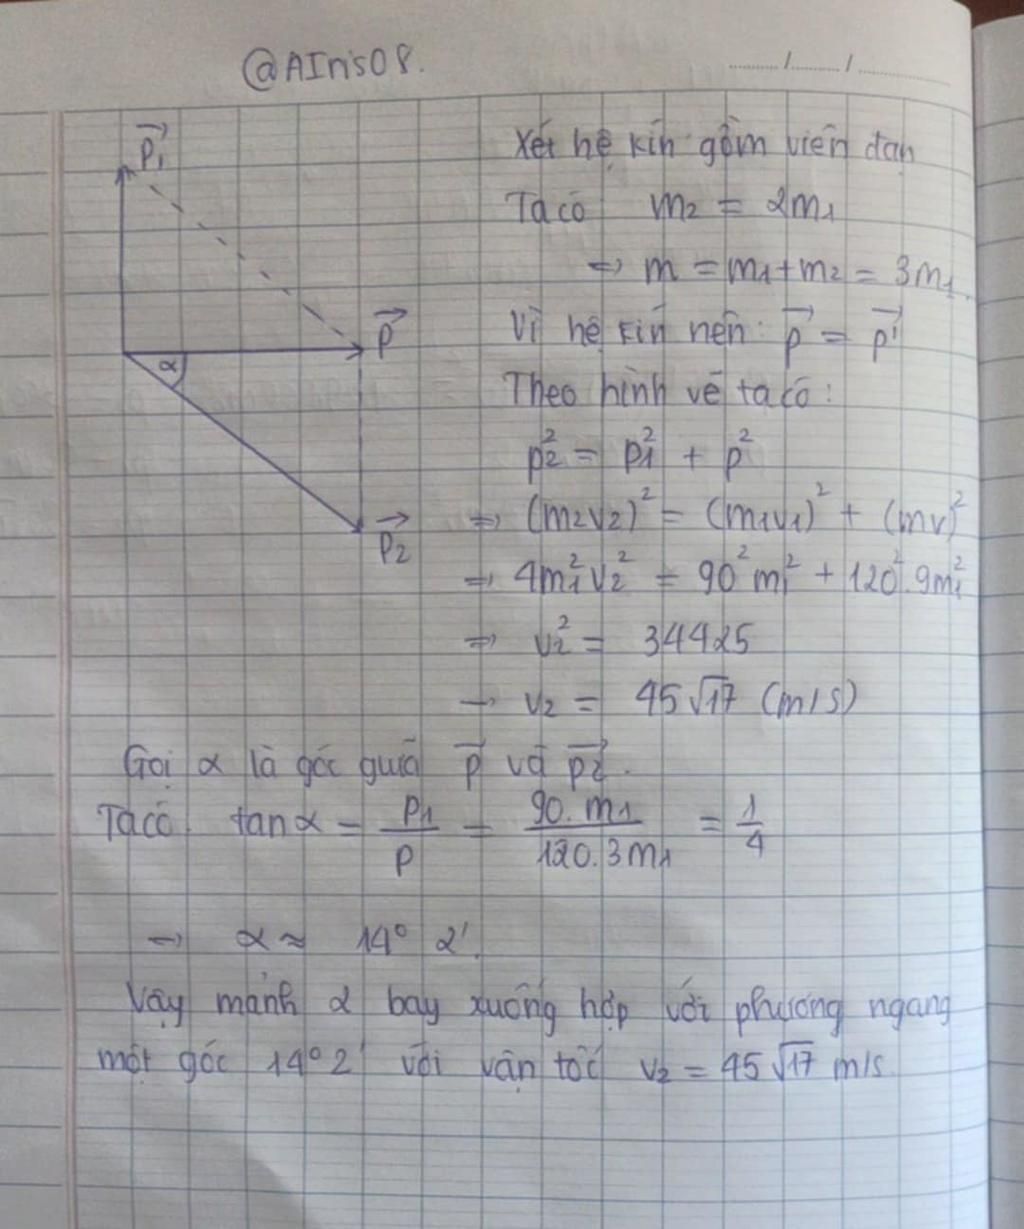 @AIris08.
......../......../............
P₁⃗
Xét hệ kín gồm viên đạn
Ta có m₂ = 2m₁
=> m = m₁+m₂ = 3m₁.
P⃗
Vì hệ kín nên: p⃗ = p⃗'
α
Theo hình vẽ ta có:
p₂² = p₁² + p²
P₂⃗
=> (m₂v₂)² = (m₁v₁)² + (mv)²
=> 4m₁²v₂² = 90²m₁² + 120².9m₁²
=> v₂² = 34425
→ v₂ = 45√17 (m/s)
Gọi α là góc giữa p⃗ và p₂⃗.
Ta có: tanα = p₁/p = 90.m₁/120.3m₁ = 1/4
→ α ≈ 14° 2'.
Vậy mảnh 2 bay xuống hợp với phương ngang
một góc 14°2' với vận tốc v₂ = 45√17 m/s.